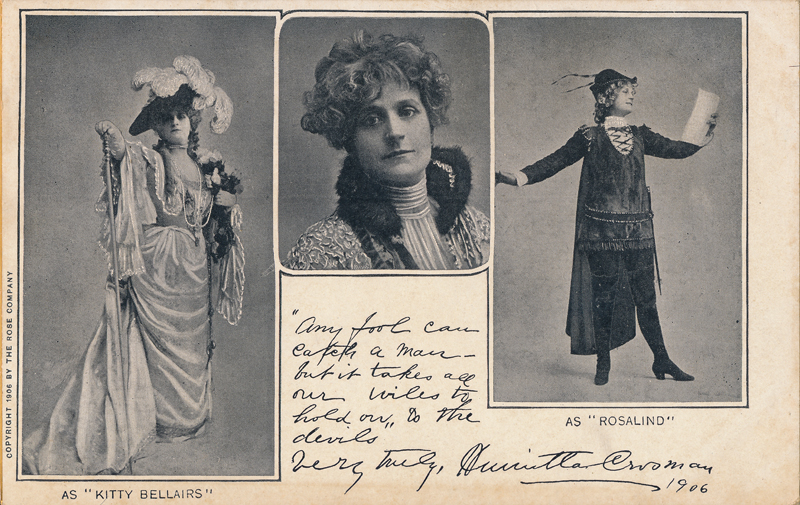 COPYRIGHT 1906 BY THE ROSE COMPANY
AS "KITTY BELLAIRS"
"Any fool can
catch a man –
but it takes all
our wiles to
hold on," to the
devils
Very truly, Henrietta Crosman
1906
AS "ROSALIND"